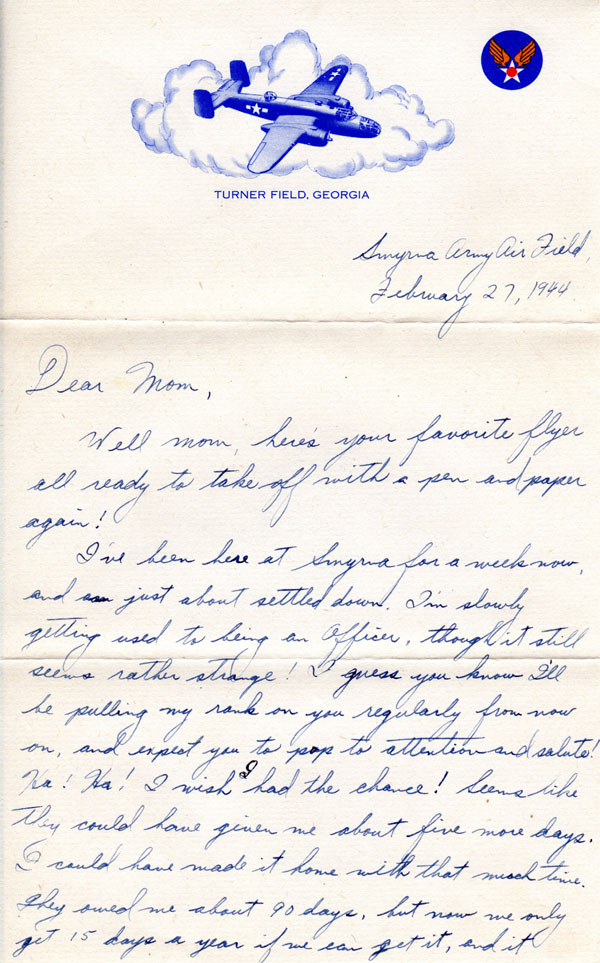 TURNER FIELD, GEORGIA
Smyrna Army Air Field,
February 27, 1944
Dear Mom,
Well mom, here's your favorite flyer
all ready to take off with a pen and paper
again!
I've been here at Smyrna for a week now,
and just about settled down. I'm slowly
getting used to being an Officer, though it still
seems rather strange! I guess you know I'll
be pulling my rank on you regularly from now
on, and expect you to pop to attention and salute!
Ha! Ha! I wish I had the chance! Seems like
they could have given me about five more days.
I could have made it home with that much time.
They owed me about 90 days, but now we only
get 15 days a year if we can get it, and it